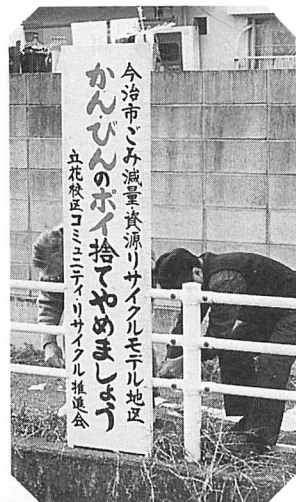 今治市ごみ減量・資源リサイクルモデル地区
かん・びんのポイ捨てやめましょう
立花校区コミュニティ・リサイクル推進会